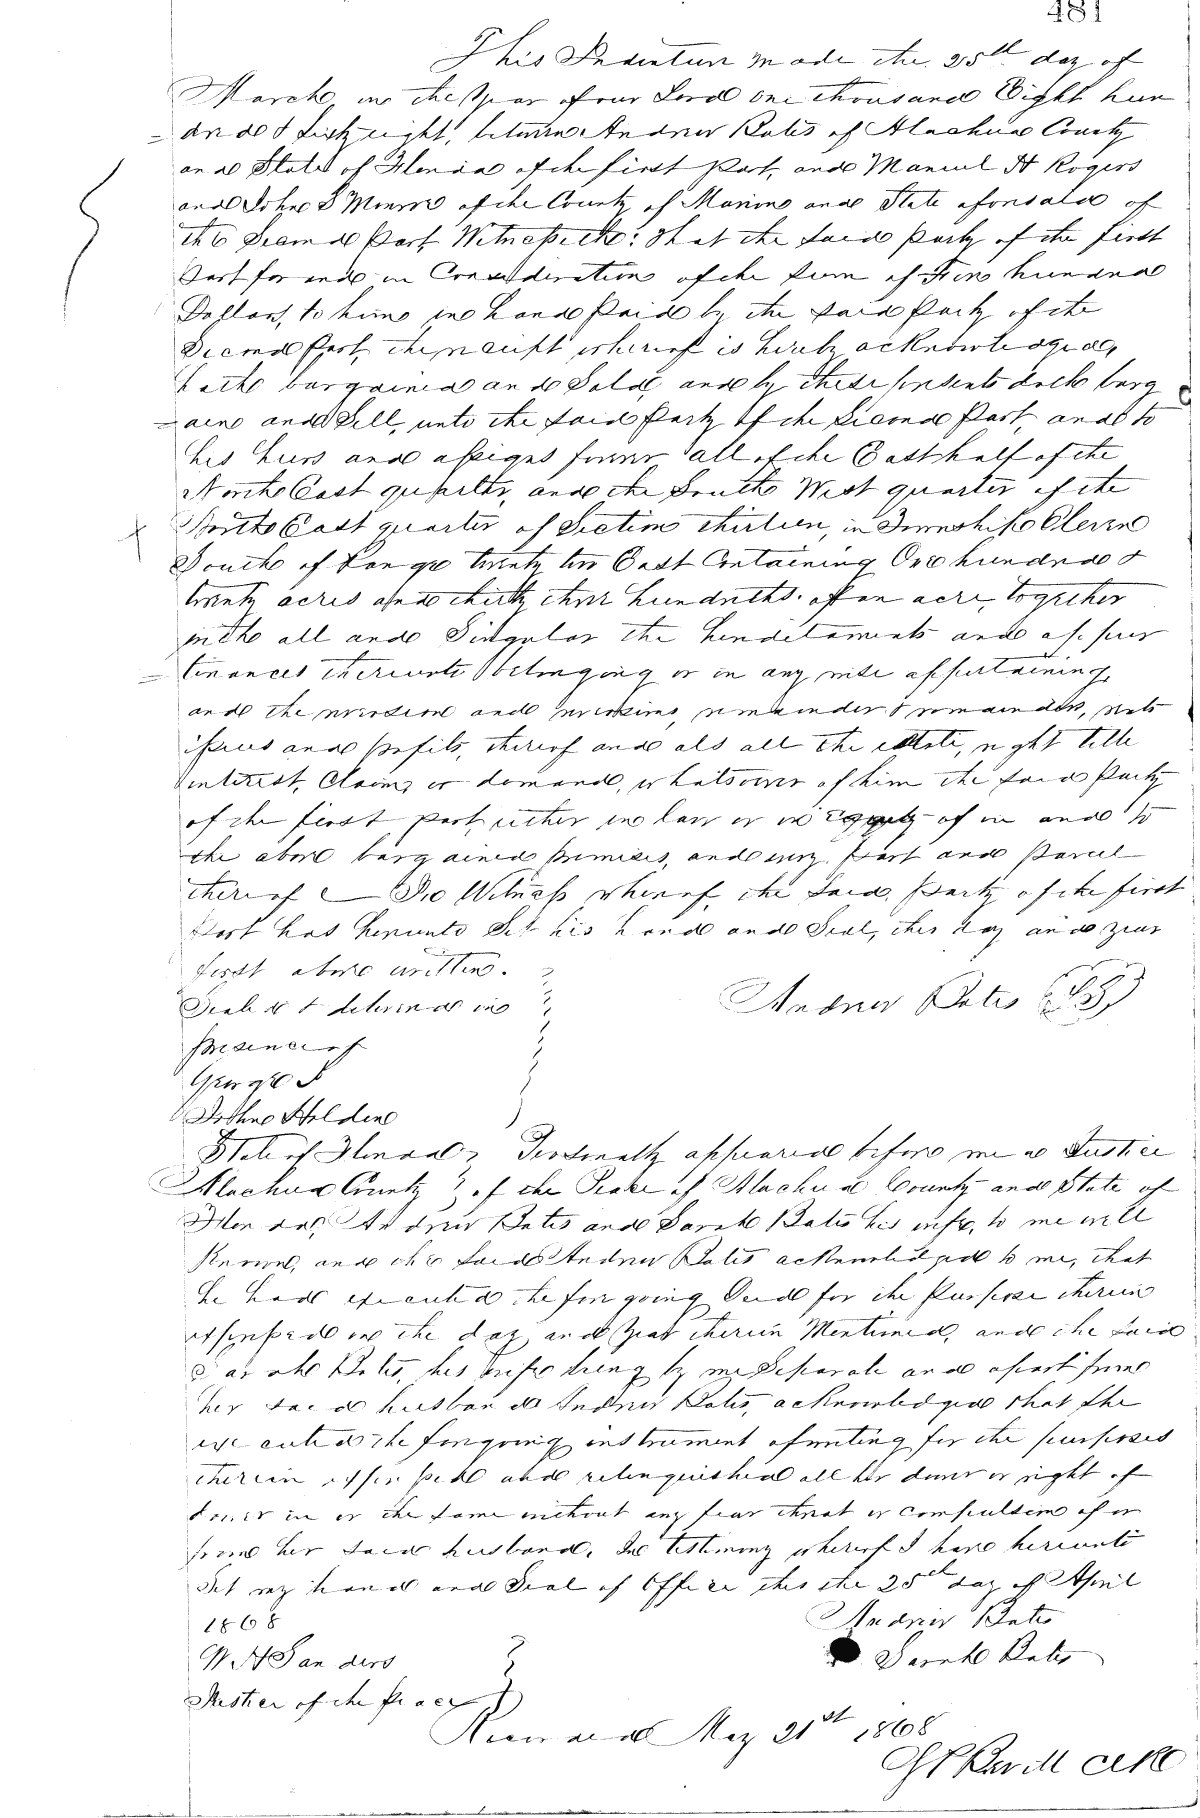 481
This Indenture made the 25th day of
March in the Year of our Lord one thousand Eight hun
= dred & sixty eight, between Andrew Bates of Alachua County
and State of Florida of the first Part, and Manuel H Rogers
and John S of the County of Marion and State aforesaid of
the Second Part, Witnesseth: That the said Party of the first
Part for and in Consideration of the sum of Five hundred
Dollars, to him in hand Paid by the said Party of the
Second Part, the receipt whereof is hereby acknowledged,
hath bargained and Sold, and by these presents doth barg
= ain and Sell, unto the said Party of the Second Part, and to
his heirs and assigns forever all of the East half of the
North East quarter, and the South West quarter of the
North East quarter of Section thirteen, in Township Eleven
South of Range twenty two East Containing One hundred &
twenty acres and thirty three hundreths of an acre, together
with all and Singular the hereditaments and appur
= tenances thereunto belonging or in any wise appertaining,
and the reversion and reversions, remainder & remainders, rents
issues and profits, thereof and als all the estate, right title
interest, Claim, or demand, whatsoever of him the said Party
of the first part, either in law or in Equity of in and to
the above bargained premises, and every Part and Parcel
thereof In Witness whereof, the said, Party of the first
Part has hereunto Set his hand and Seal, this day and year
first above written.
Seald & delivered in
Andrew Bates (LS)
presence of
George S
John Holden
State of Florida Personally appeared before me a Justice
Alachua County of the Peace of Alachua County and State of
Florida, Andrew Bates and Sarah Bates his wife, to me well
Known, and the said Andrew Bates acknowledged to me, that
he had executed the foregoing Deed for the Purpose therein
expressed on the day, and Year therein Mentioned, and the said
Sarah Bates, his wife being by me Separate and apart from
her said husband Andrew Bates, acknowledged that she
executed the foregoing instrument of writing for the purposes
therein expressed and relinquished all her dower or right of
dower in or the same without any fear threat or compulsion of or
from her said husband. In testimony whereof I have hereunto
Set my hand and Seal of Office this the 25th day of April
1868
Andrew Bates
W. H Sanders
Sarah Bates
Justice of the Peace
May 21st 1868
Clk